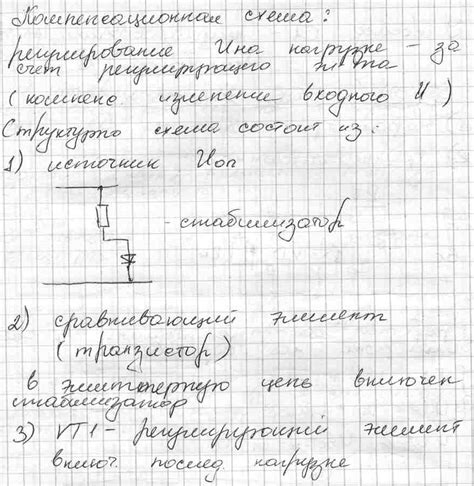 Компенсационная схема:
регулирование U на нагрузке - за
счет регулирующего эл-та
(компенс. изменение входного U)
Структурно схема состоит из:
1) источник Uоп
- стабилизатор
2) сравнивающий элемент
(транзистор)
в эмиттерную цепь включен
стабилизатор
3) VT1 - регулирующий элемент
включ. послед. нагрузке